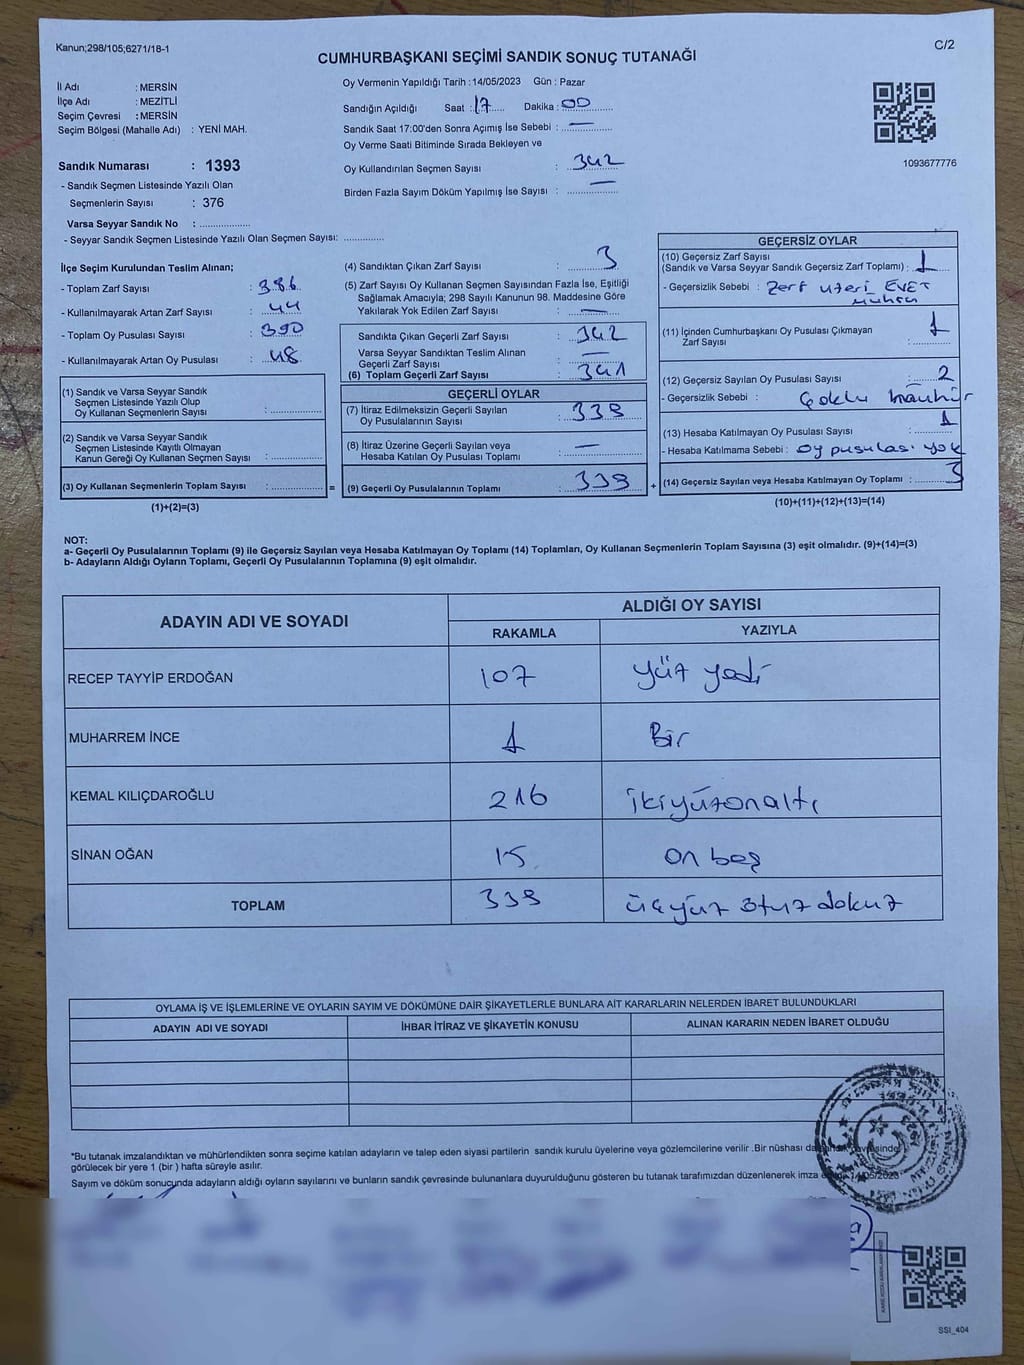 Kanun;298/105;6271/18-1
C/2
CUMHURBAŞKANI SEÇİMİ SANDIK SONUÇ TUTANAĞI
İl Adı : MERSİN
İlçe Adı : MEZİTLİ
Seçim Çevresi : MERSİN
Seçim Bölgesi (Mahalle Adı) : YENİ MAH.
Sandık Numarası : 1393
- Sandık Seçmen Listesinde Yazılı Olan
Seçmenlerin Sayısı : 376
Varsa Seyyar Sandık No : ..................
- Seyyar Sandık Seçmen Listesinde Yazılı Olan Seçmen Sayısı: ..............
Oy Vermenin Yapıldığı Tarih :14/05/2023 Gün : Pazar
Sandığın Açıldığı Saat :17 Dakika :00
Sandık Saat 17:00'den Sonra Açımış İse Sebebi : —
Oy Verme Saati Bitiminde Sırada Bekleyen ve
Oy Kullandırılan Seçmen Sayısı : 342
Birden Fazla Sayım Döküm Yapılmış İse Sayısı : —
1093677776
İlçe Seçim Kurulundan Teslim Alınan;
- Toplam Zarf Sayısı : 386
- Kullanılmayarak Artan Zarf Sayısı : 44
- Toplam Oy Pusulası Sayısı : 390
- Kullanılmayarak Artan Oy Pusulası : 48
(1) Sandık ve Varsa Seyyar Sandık
Seçmen Listesinde Yazılı Olup
Oy Kullanan Seçmenlerin Sayısı : ..............
(2) Sandık ve Varsa Seyyar Sandık
Seçmen Listesinde Kayıtlı Olmayan
Kanun Gereği Oy Kullanan Seçmen Sayısı : ..............
(3) Oy Kullanan Seçmenlerin Toplam Sayısı : ..............
(1)+(2)=(3)
=
(4) Sandıktan Çıkan Zarf Sayısı : 3
(5) Zarf Sayısı Oy Kullanan Seçmen Sayısından Fazla İse, Eşitliği
Sağlamak Amacıyla; 298 Sayılı Kanunun 98. Maddesine Göre
Yakılarak Yok Edilen Zarf Sayısı : —
Sandıkta Çıkan Geçerli Zarf Sayısı : 342
Varsa Seyyar Sandıktan Teslim Alınan
Geçerli Zarf Sayısı : —
(6) Toplam Geçerli Zarf Sayısı : 341
GEÇERLİ OYLAR
(7) İtiraz Edilmeksizin Geçerli Sayılan
Oy Pusulalarının Sayısı : 339
(8) İtiraz Üzerine Geçerli Sayılan veya
Hesaba Katılan Oy Pusulası Toplamı : —
(9) Geçerli Oy Pusulalarının Toplamı : 339
+
GEÇERSİZ OYLAR
(10) Geçersiz Zarf Sayısı
(Sandık ve Varsa Seyyar Sandık Geçersiz Zarf Toplamı) : 1
- Geçersizlik Sebebi : Zarf üzeri EVET
mührü
(11) İçinden Cumhurbaşkanı Oy Pusulası Çıkmayan
Zarf Sayısı : 1
(12) Geçersiz Sayılan Oy Pusulası Sayısı : 2
- Geçersizlik Sebebi : Çoklu mühür
(13) Hesaba Katılmayan Oy Pusulası Sayısı : 1
- Hesaba Katılmama Sebebi : oy pusulası yok
(14) Geçersiz Sayılan veya Hesaba Katılmayan Oy Toplamı : 3
(10)+(11)+(12)+(13)=(14)
NOT:
a- Geçerli Oy Pusulalarının Toplamı (9) ile Geçersiz Sayılan veya Hesaba Katılmayan Oy Toplamı (14) Toplamları, Oy Kullanan Seçmenlerin Toplam Sayısına (3) eşit olmalıdır. (9)+(14)=(3)
b- Adayların Aldığı Oyların Toplamı, Geçerli Oy Pusulalarının Toplamına (9) eşit olmalıdır.
ADAYIN ADI VE SOYADI ALDIĞI OY SAYISI
RAKAMLA YAZIYLA
RECEP TAYYİP ERDOĞAN 107 yüz yedi
MUHARREM İNCE 1 Bir
KEMAL KILIÇDAROĞLU 216 ikiyüzonaltı
SİNAN OĞAN 15 on beş
TOPLAM 339 üçyüz otuz dokuz
OYLAMA İŞ VE İŞLEMLERİNE VE OYLARIN SAYIM VE DÖKÜMÜNE DAİR ŞİKAYETLERLE BUNLARA AİT KARARLARIN NELERDEN İBARET BULUNDUKLARI
ADAYIN ADI VE SOYADI İHBAR İTİRAZ VE ŞİKAYETİN KONUSU ALINAN KARARIN NEDEN İBARET OLDUĞU
*Bu tutanak imzalandıktan ve mühürlendikten sonra seçime katılan adayların ve talep eden siyasi partilerin sandık kurulu üyelerine veya gözlemcilerine verilir .Bir nüshası da
görülecek bir yere 1 (bir ) hafta süreyle asılır.
Sayım ve döküm sonucunda adayların aldığı oyların sayılarını ve bunların sandık çevresinde bulunanlara duyurulduğunu gösteren bu tutanak tarafımızdan düzenlenerek imza
SSI_404